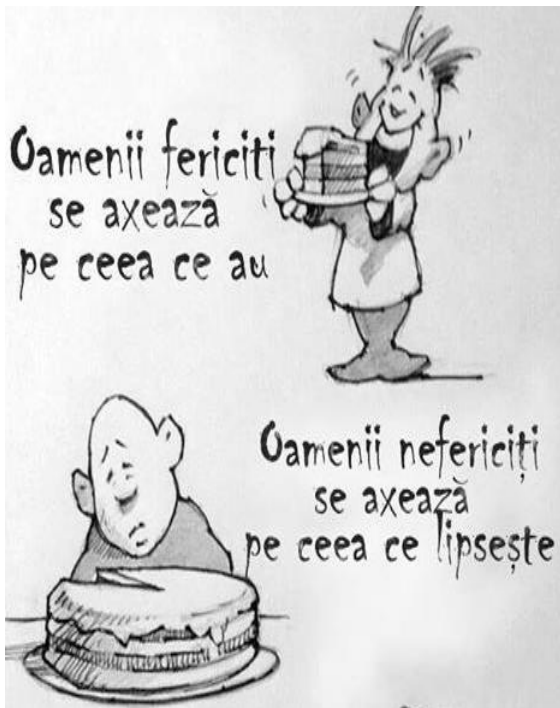 Oamenii fericiti
se axează
pe ceea ce au
Oamenii nefericiți
se axează
pe ceea ce lipsește